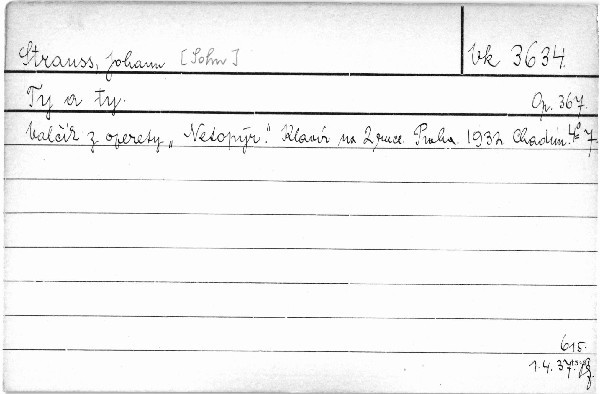 Strauss, Johann [Sohn] Vk 3634
Ty a ty. Op. 367.
Valčík z operety „Netopýr." Klavír na 2 ruce. Praha 1932 Chadim. 4° 7.
615.
1.4.37